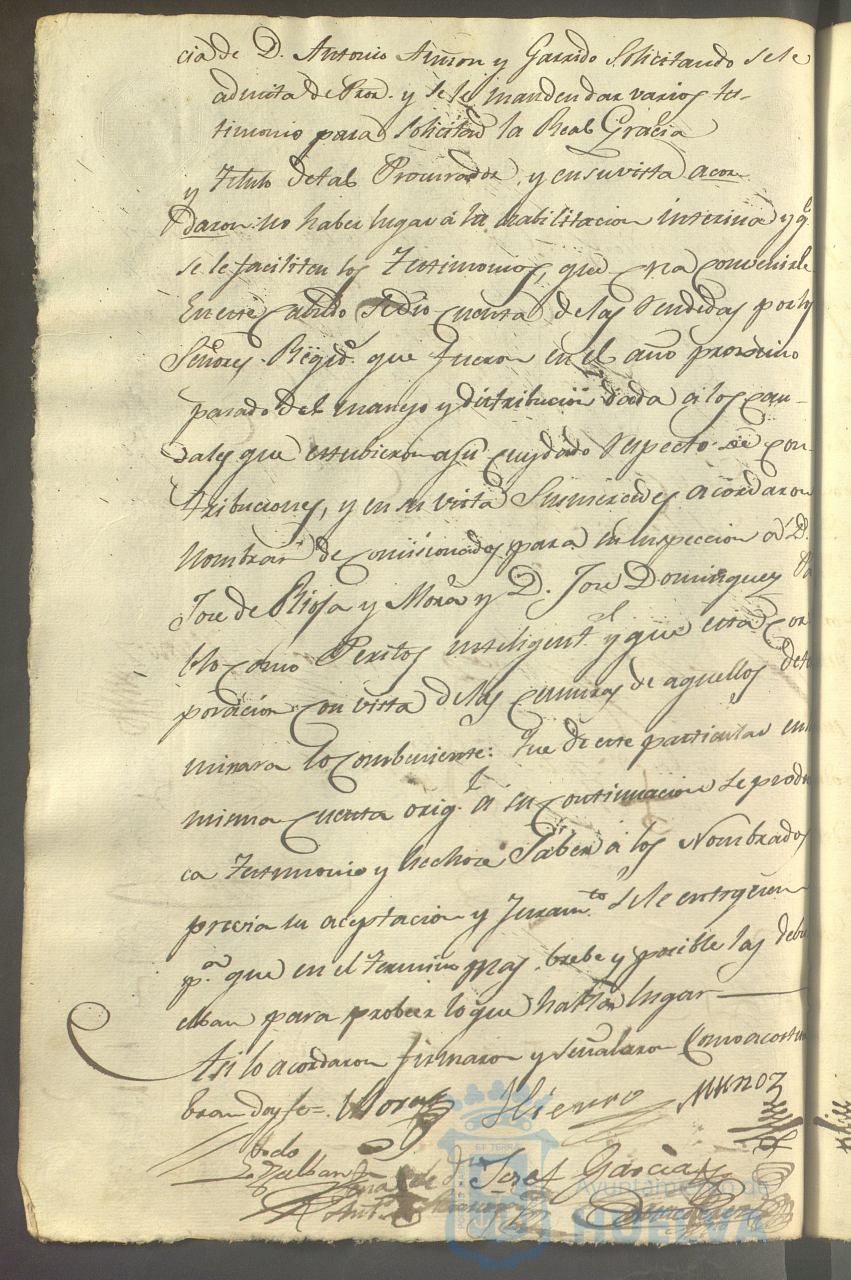 cia de D. Antonio Aunon y Garrido Solicitando se le
admita de Pror. y se le manden dar varios tes-
timonio para Solicitad la Real Gracia
y Titulo de tal Procurador, y en su vista acor
daron: no haber lugar á la avilitacion interina y q.e
se le faciliten los Testimonios que crea Combenirle
En este Cabildo se dio cuenta de las rendidas por los
Señores Regid.s que fueron en el año proximo
pasado del manejo y distribucion dada a los cau-
dales que estubieron a su cuydado respecto de con-
tribuciones, y en su vista Sus mercedes acordaron
Nombrar de comisionados para su inspeccion a D.
Jose de Rioja y Mora y D. Jose Dominguez
como Peritos inteligent.s y que esta Cor
poracion con vista de las censuras de aquellos deter
minara lo Combeniente: Que de este particular en la
misma Cuenta orig.l á su Continuacion se produs
ca Testimonio y hechose Saber á los Nombrados
previa su aceptacion y Juram.to se le entreguen
p.a que en el termino mas brebe y posible las debu
elban para probeer lo que halla lugar
Asi lo acordaron firmaron y señalaron Como acostum
bran doy fe= Mora Hierro Muñoz
Josef Garcia
Ayuntamiento de
HUELVA